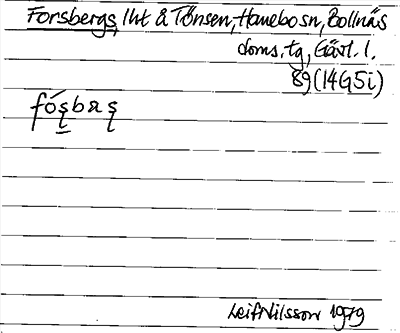 Forsbergs, lht å Tönsen, Hanebo sn, Bollnäs
doms. tg, Gävl. l.
89 (14G5i)
fó̱ʂbaʂ
Leif Nilsson 1979